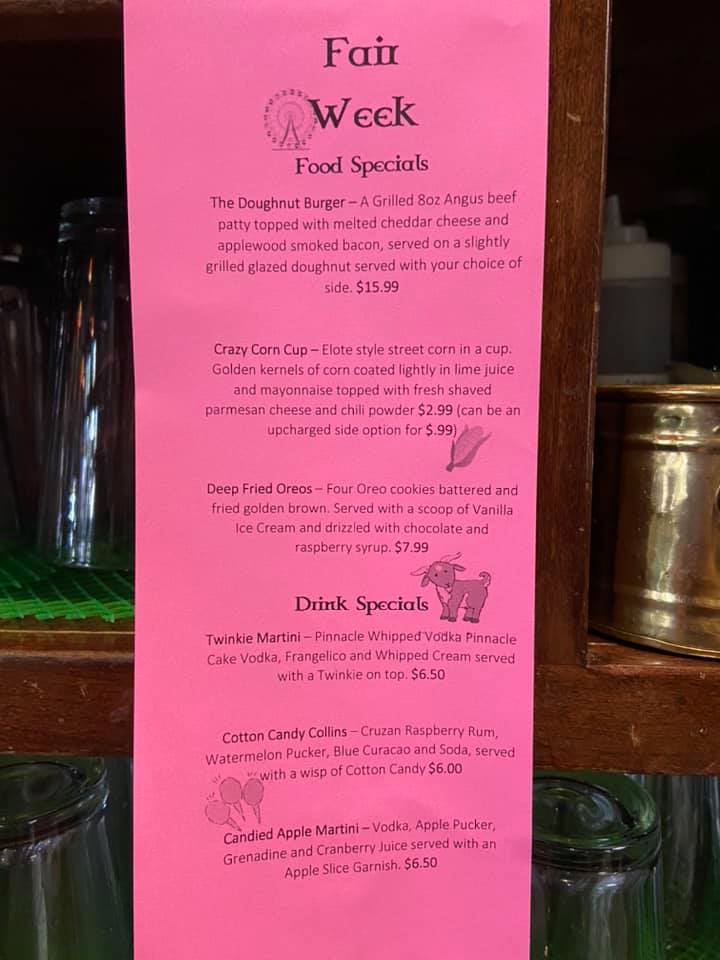 Fair
Week
Food Specials
The Doughnut Burger – A Grilled 8oz Angus beef
patty topped with melted cheddar cheese and
applewood smoked bacon, served on a slightly
grilled glazed doughnut served with your choice of
side. $15.99
Crazy Corn Cup – Elote style street corn in a cup.
Golden kernels of corn coated lightly in lime juice
and mayonnaise topped with fresh shaved
parmesan cheese and chili powder $2.99 (can be an
upcharged side option for $.99)
Deep Fried Oreos – Four Oreo cookies battered and
fried golden brown. Served with a scoop of Vanilla
Ice Cream and drizzled with chocolate and
raspberry syrup. $7.99
Drink Specials
Twinkie Martini – Pinnacle Whipped Vodka Pinnacle
Cake Vodka, Frangelico and Whipped Cream served
with a Twinkie on top. $6.50
Cotton Candy Collins – Cruzan Raspberry Rum,
Watermelon Pucker, Blue Curacao and Soda, served
with a wisp of Cotton Candy $6.00
Candied Apple Martini – Vodka, Apple Pucker,
Grenadine and Cranberry Juice served with an
Apple Slice Garnish. $6.50